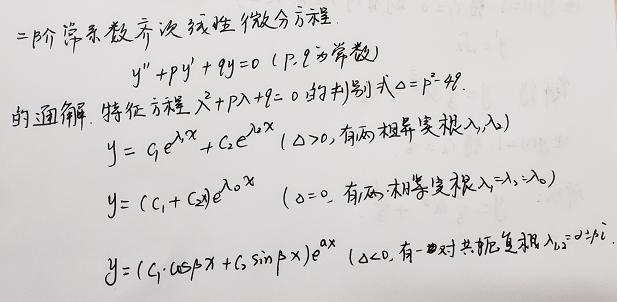 二阶常系数齐次线性微分方程.
y''+py'+qy=0 (P,q为常数)
的通解. 特征方程λ²+pλ+q=0的判别式Δ=p²-4q.
y=C₁e^{λ₁x}+C₂e^{λ₂x} (Δ>0, 有两相异实根λ₁,λ₂)
y=(C₁+C₂x)e^{λ₀x} (Δ=0, 有两相等实根λ₁=λ₂=λ₀)
y=(C₁·cosβx+C₂sinβx)e^{αx} (Δ<0, 有一对共轭复根λ₁,₂=α±βi.